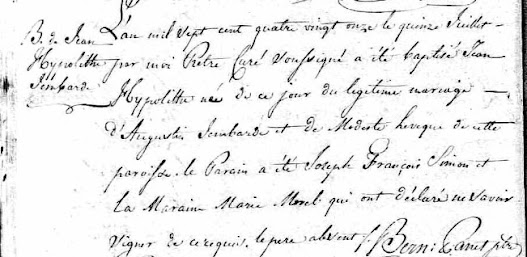 B. de Jean
Hypolithe
Jembarde
L'an mil sept cent quatre vingt onze le quinze Juillet
par moi Prêtre Curé soussigné a été baptisé Jean
Hypolithe né de ce jour du legitime mariage
d'Augustin Jembarde et de Modeste Leveque de cette
paroisse. le Parain a été Joseph François Simon et
la Maraine Marie Morel qui ont déclaré ne savoir
signer de ce requis. le pere absent /. Bern: Panet ptre